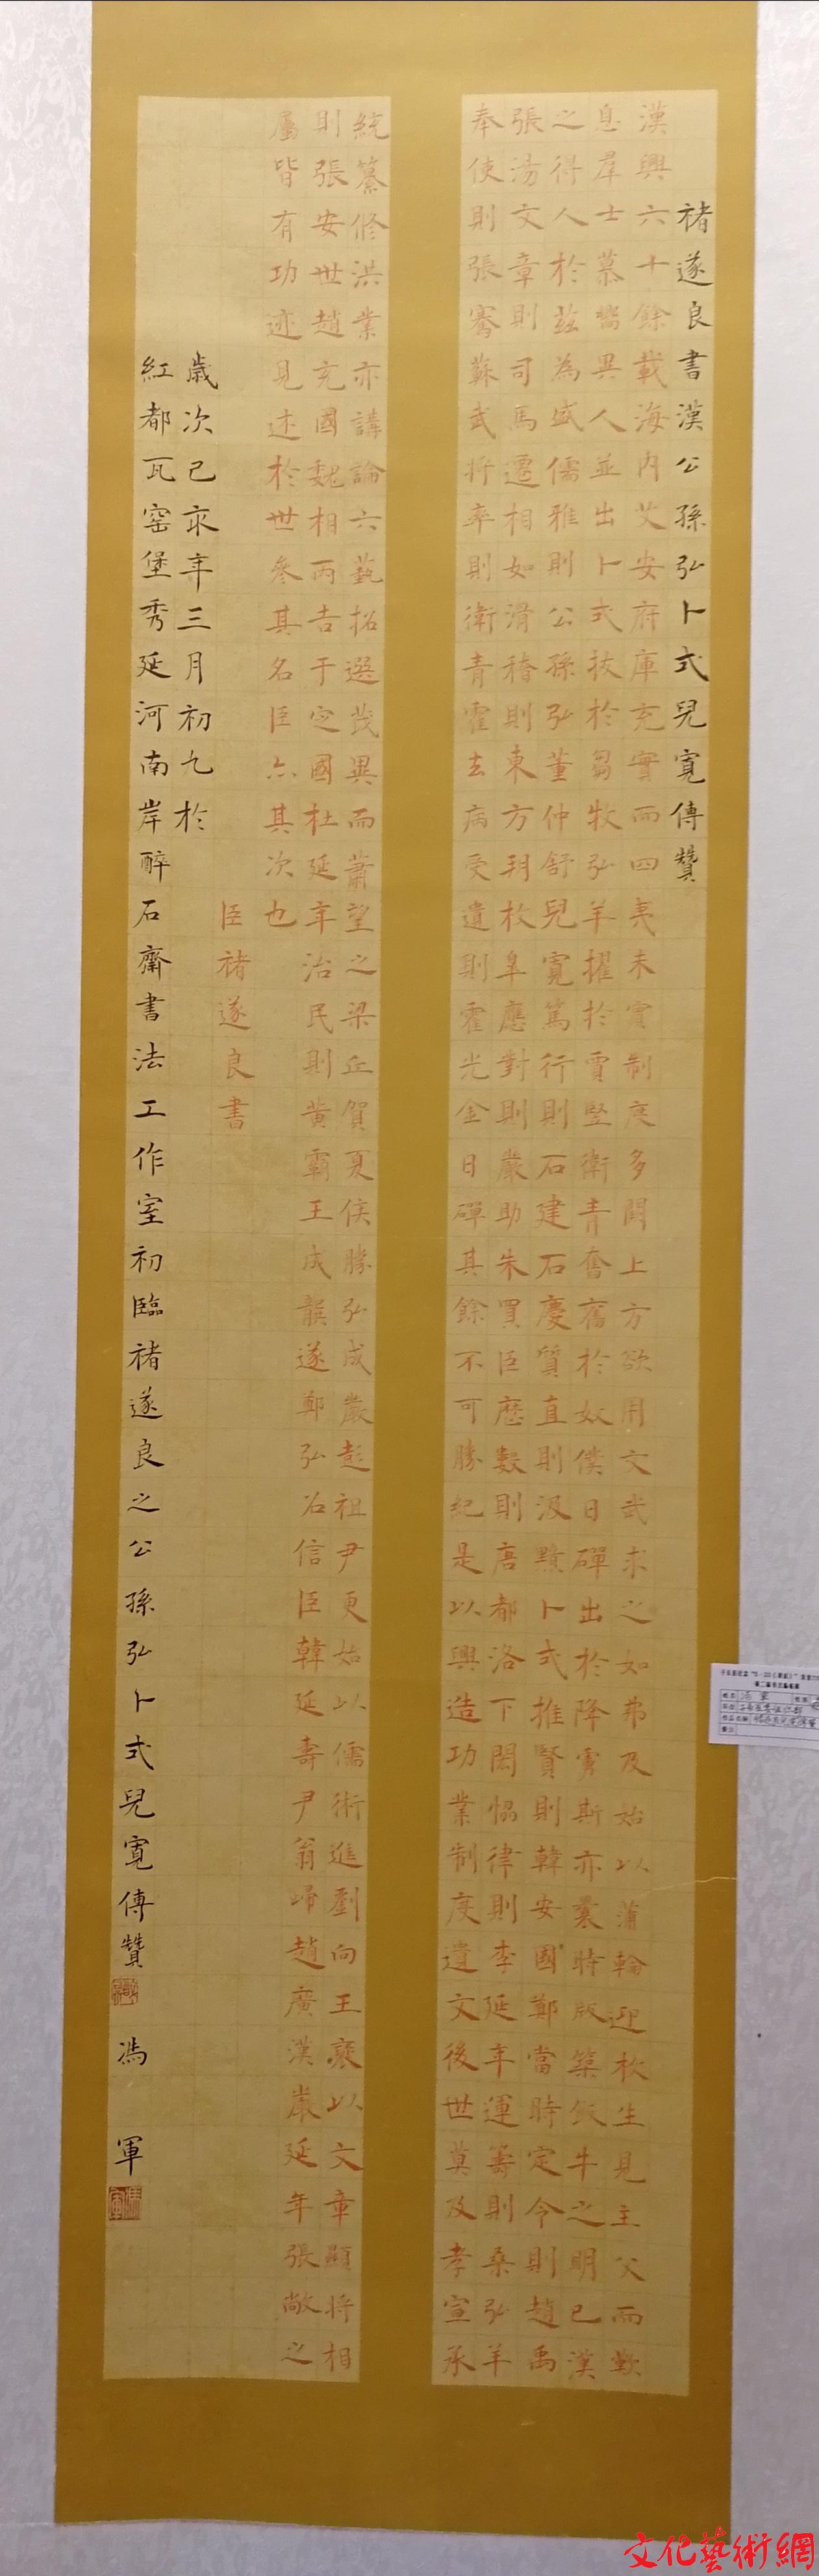 褚遂良書漢公孫弘卜式兒寬傳贊
漢興六十餘載海内艾安府庫充實而四夷未賓制度多闕上方欲用文武求之如弗及始以蒲輪迎枚生見主父而歎
息群士慕嚮異人並出卜式拔於芻牧弘羊擢於賈竪衛青奮舊於奴僕日磾出於降虜斯亦曩時版築飯牛之明已漢
之得人於茲為盛儒雅則公孫弘董仲舒兒寬篤行則石建石慶質直則汲黯卜式推賢則韓安國鄭當時定令則趙禹
張湯文章則司馬遷相如滑稽則東方朔枚皋應對則嚴助朱買臣歷數則唐都洛下閎協律則李延年運籌則桑弘羊
奉使則張騫蘇武將率則衛青霍去病受遺則霍光金日磾其餘不可勝紀是以興造功業制度遺文後世莫及孝宣承
統纂修洪業亦講論六藝招選茂異而蕭望之梁丘賀夏侯勝弘成嚴彭祖尹更始以儒術進劉向王褒以文章顯將相
則張安世趙充國魏相丙吉于定國杜延年治民則黃霸王成龔遂鄭弘召信臣韓延壽尹翁歸趙廣漢嚴延年張敞之
屬皆有功迹見述於世參其名臣亦其次也
臣褚遂良書
歲次己亥年三月初九於
紅都瓦窑堡秀延河南岸醉石齋書法工作室初臨褚遂良之公孫弘卜式兒寬傳贊 馮軍
文化藝術網